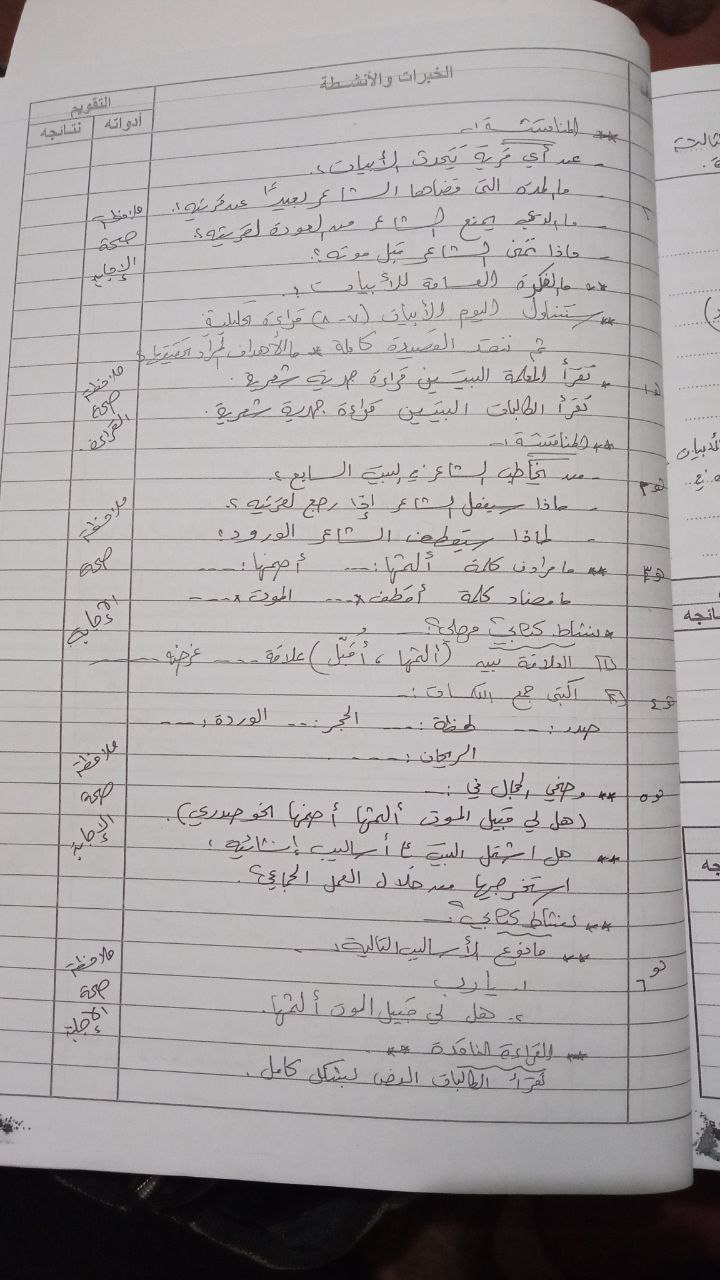 الخبرات والأنشطة
التقويم
أدواته نتائجه
** المناقشة :-
- عن أي قرية تتحدث الأبيات؟
ما المدة التي قضاها الشاعر بعيدًا عن قريته؟
- ما الذي يمنع الشاعر من العودة لقريته؟ ملاحظة
- ماذا تمنى الشاعر قبل موته؟ صحة
** ما الفكرة العامة للأبيات؟ الإجابة
** سنتناول اليوم الأبيات (٧-٨) قراءة تحليلية
ثم ننقد القصيدة كاملة * ما الأهداف المراد تحقيقها؟
هـ١ * تقرأ المعلمة البيتين قراءة جهرية شعرية. ملاحظة
تقرأ الطالبات البيتين قراءة جهرية شعرية. صحة
** المناقشة :- القراءة
هـ٢ - من يخاطب الشاعر في البيت السابع؟
- ماذا سيفعل الشاعر إذا رجع لقريته؟
- لماذا سيقطف الشاعر الورود؟ ملاحظة
هـ٣ ** ما مرادف كلمة ألثمها: ---- أضمها: ---- صحة
ما مضاد كلمة أقطف × ---- الموت × ----
* نشاط كتابي مرحلي؟ الإجابة
١ العلاقة بين (ألثمها ، أقبّل) علاقة ---- غرضه ----
هـ٤ ٢ اكتبي جمع الكلمات :-
صدر: ---- لحظة: ---- الحجر: --- الوردة: ----
الريحان: ---- ملاحظة
هـ٥ ** وضحي الجمال في :- صحة
(هل لي قبيل الموت ألثمها أضمها نحو صدري). الإجابة
** هل اشتمل البيت على أساليب إنشائية؟
استخرجيها من خلال العمل الجماعي؟
** نشاط كتابي؟
هـ٦ ** ما نوع الأساليب التالية :- ملاحظة
١. يا رب صحة
٢. هل لي قبيل الموت ألثمها. الإجابة
** القراءة الناقدة **
تقرأ الطالبات النص بشكل كامل.